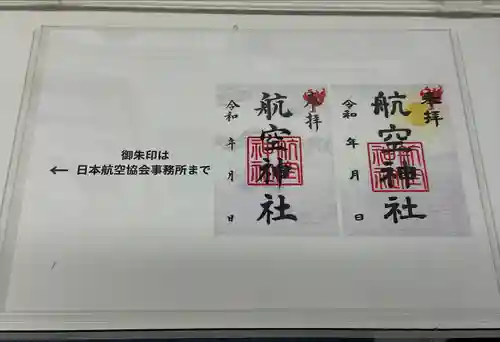 御朱印は
← 日本航空協会事務所まで
奉拝
航空神社
令和 年 月 日
奉拝
航空神社
令和 年 月 日